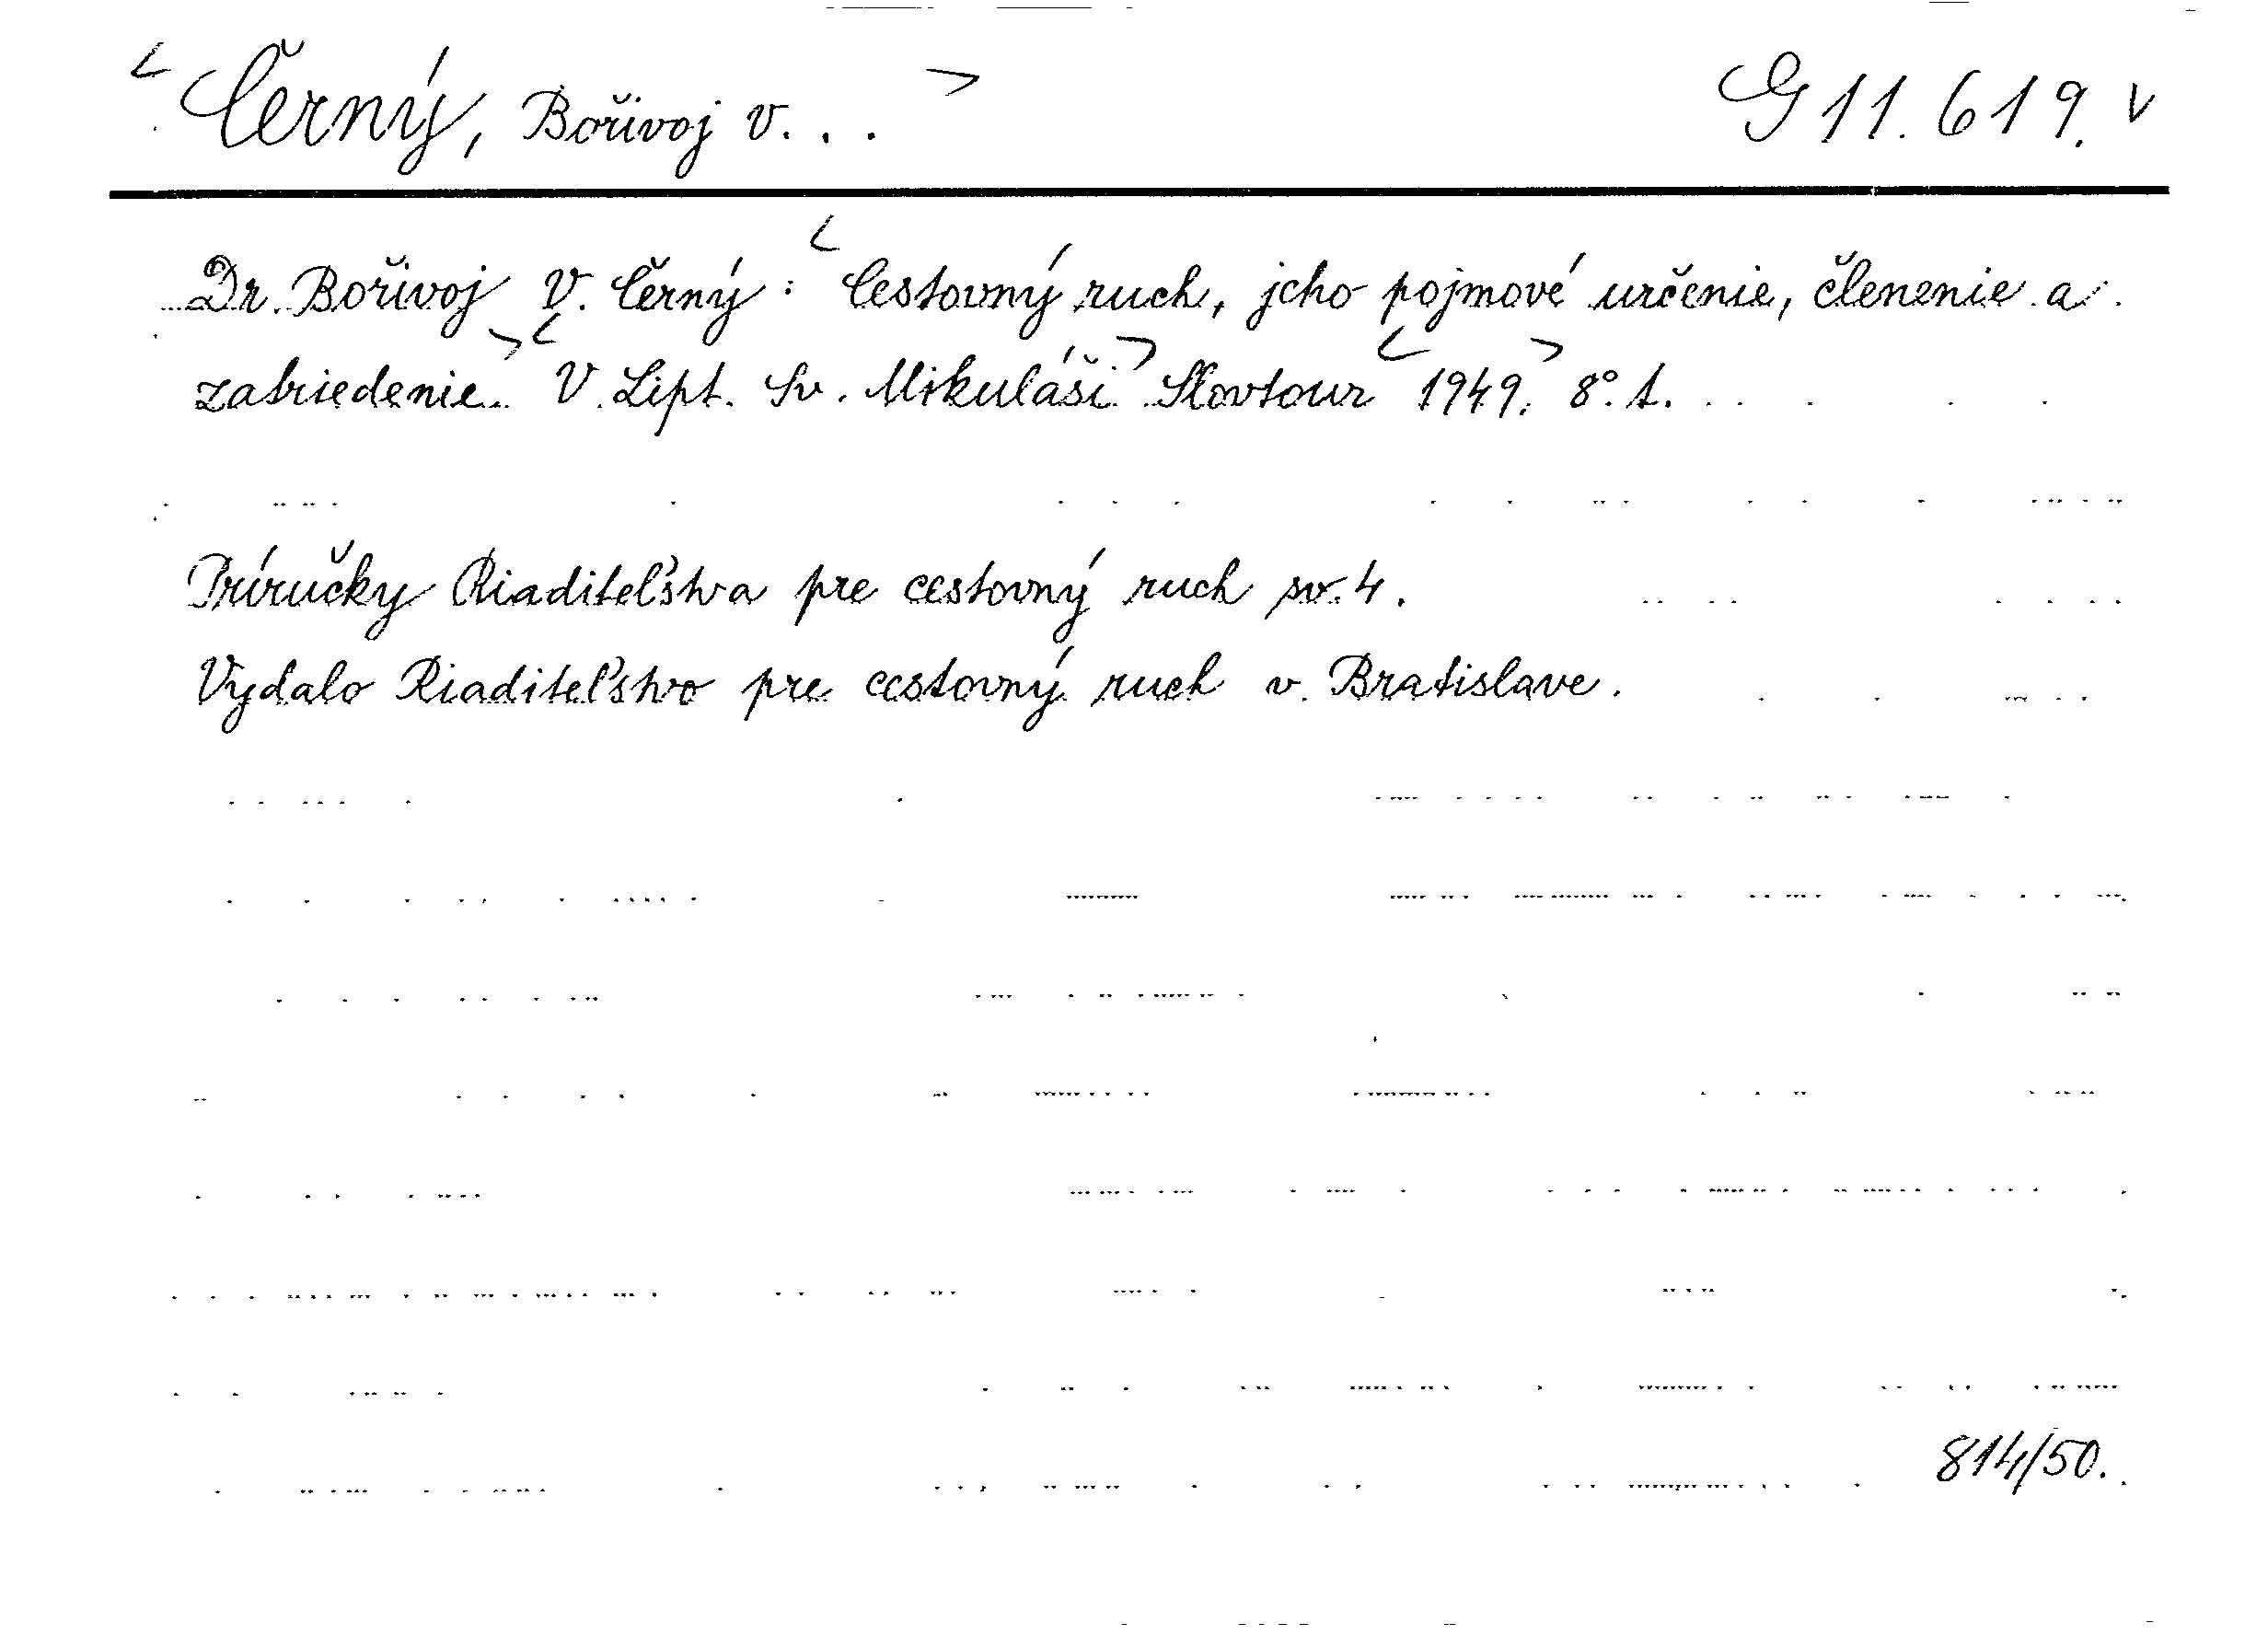 <Černý, Bořivoj V...> G 11.619. v
Dr. Bořivoj V. Černý: <Cestovný ruch, jeho pojmové určenie, členenie a
zatriedenie.> <V Lipt. Sv. Mikuláši> Slovtour <1949.> 8°. 1.
Príručky Riaditeľstva pre cestovný ruch sv. 4.
Vydalo Riaditeľstvo pre cestovný ruch v Bratislave.
814/50.